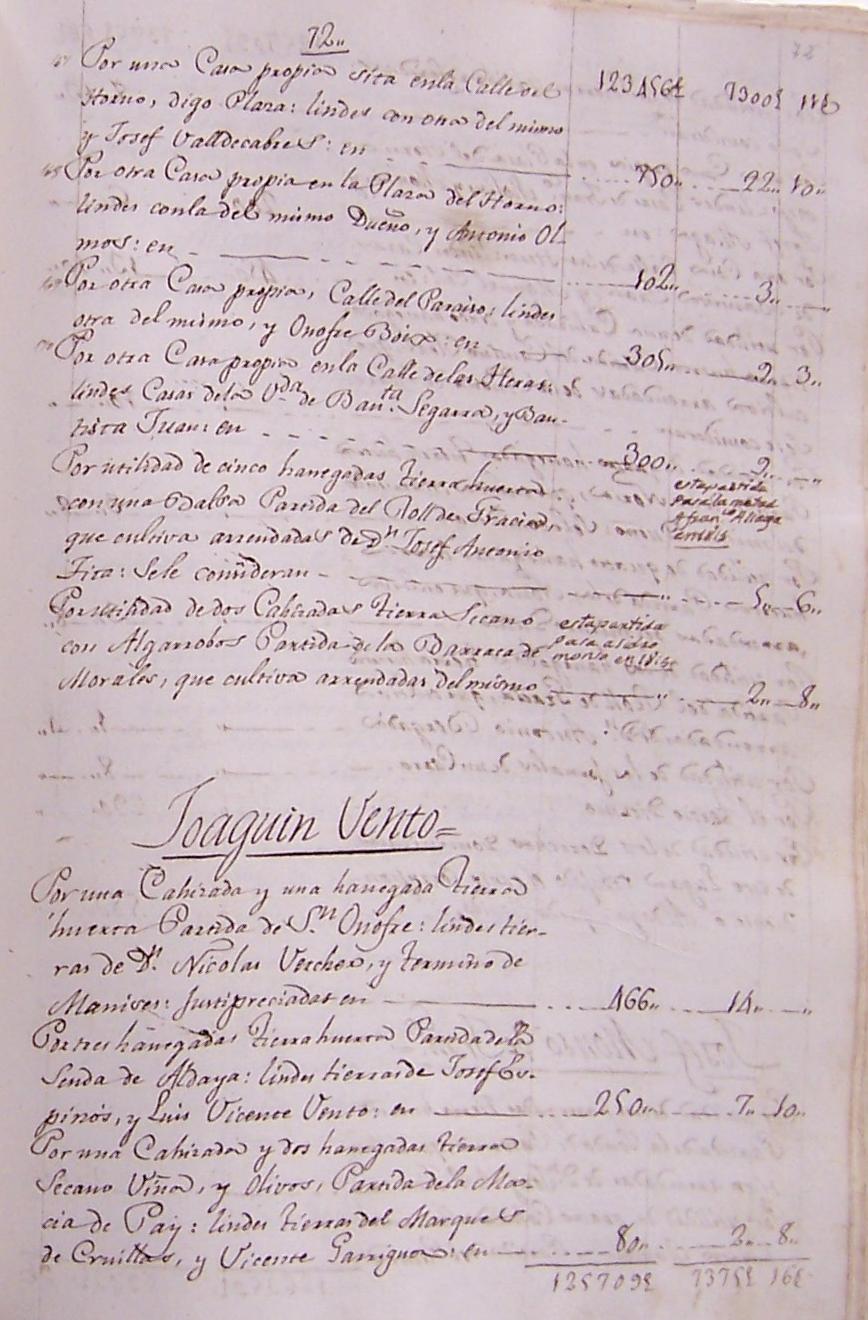 72,,
72
Por una Casa propia sita en la Calle del 123456£ 7300£ 11£
Horno, digo Plaza: lindes con otra del mismo
y Josef Valldecabres: en 750,, 22,, 10,,
Por otra Casa propia en la Plaza del Horno:
lindes con la del mismo Dueño, y Antonio Ol-
mos: en 102,, 3,, ,,
Por otra Casa propia, Calle del Paraiso: lindes
otra del mismo, y Onofre Boix: en 305,, 9,, 3,,
Por otra Casa propia en la Calle de las Heras:
lindes Casas de la V.da de Bau.ta Segarra, y Bau-
tista Juan: en 300,, 9,, ,,
Por utilidad de cinco hanegadas tierra huerta
con una Balsa Partida del Roll de Gracia,
que cultiva arrendadas de D.n Josef Antonio
Fita: Se le consideran ,, 5,, 6,,
esta partida
pasa la mitad
a Fran.co Aliaga
Por utilidad de dos Cahizadas tierra Secano
con Algarrobos Partida de la Barraca de
Morales, que cultiva arrendadas del mismo ,, 2,, 8,,
esta partida
pasa a Isidro
Joaquin Vento=
Por una Cahizada y una hanegada tierra
huerta Partida de S.n Onofre: lindes tier-
ras de D.n Nicolas Vercher, y termino de
Manises: Justipreciadas en 466,, 14,, ,,
Por tres hanegadas tierra huerta Partida de la
Senda de Aldaya: lindes tierras de Josef Es-
pinós, y Luis Vicente Vento: en 250,, 7,, 10,,
Por una Cahizada y dos hanegadas tierra
Secano Viña, y Olivos, Partida de la Ma-
cia de Pay: lindes tierras del Marques
de Cruillas, y Vicente Garrigues: en 80,, 2,, 8,,
125709£ 7375£ 16£